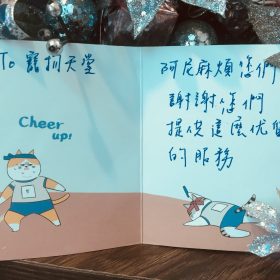 To 寵物天堂
Cheer
up!
阿尼麻煩您們
謝謝您們
提供這麼优質
的服務